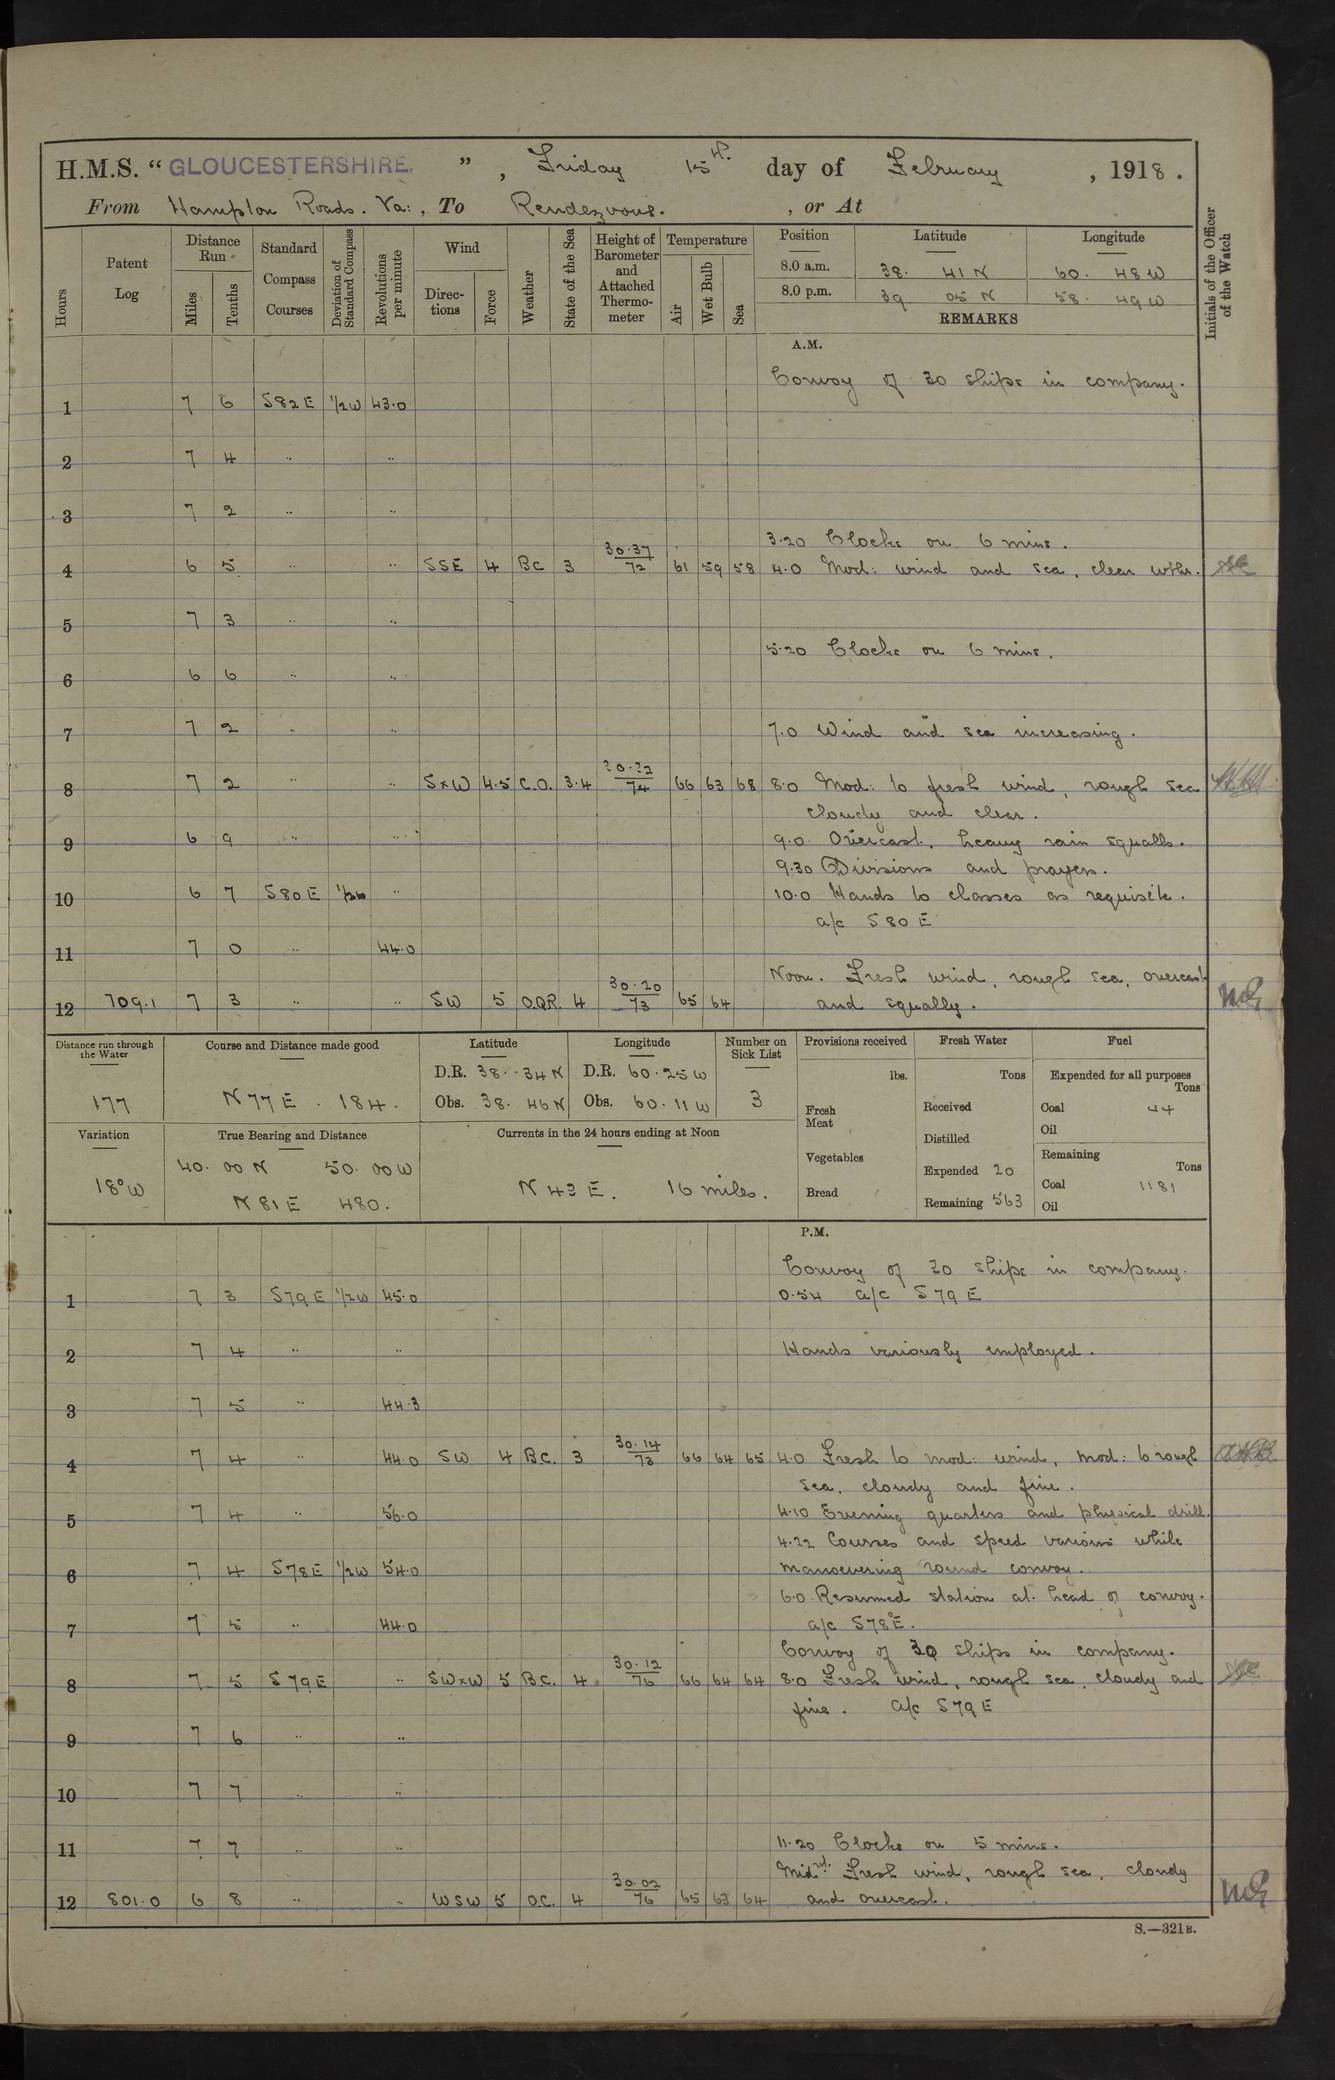 H.M.S. " GLOUCESTERSHIRE. ", Friday 15th. day of February , 1918.
From Hampton Roads. Va: , To Rendezvous. , or At
Hours
Patent Log
Distance Run
Miles
Tenths
Standard Compass Courses
Deviation of Standard Compass
Revolutions per minute
Wind
Directions
Force
Weather
State of the Sea
Height of Barometer and Attached Thermometer
Temperature
Air
Wet Bulb
Sea
Position Latitude Longitude
8.0 a.m. 38. 41 N 60. 48 W
8.0 p.m. 39 05 N 58. 49 W
REMARKS
Initials of the Officer of the Watch
A.M.
Convoy of 30 ships in company.
1 7 6 S82E 1/2W 43.0
2 7 4 " "
3 7 2 " "
3.20 Clocks on 6 mins.
4 6 5 " " SSE 4 BC 3 30.37/72 61 59 58 4.0 Mod: wind and sea, clear wthr.
5 7 3 " "
5.20 Clocks on 6 mins.
6 6 6 " "
7 7 2 " " 7.0 Wind and sea increasing.
8 7 2 " " SxW 4.5 C.O. 3.4 30.32/74 66 63 68 8.0 Mod: to fresh wind, rough sea
cloudy and clear.
9 6 9 " " 9.0 Overcast, heavy rain squalls.
9.30 Divisions and prayers.
10 6 7 S80E " 10.0 Hands to classes as requisite.
a/c S80E
11 7 0 " 44.0
Noon. Fresh wind, rough sea, overcast
12 709.1 7 3 " " SW 5 O.QR. 4 30.20/73 65 64 and squally.
Distance run through the Water
177
Course and Distance made good
N77E. 184.
Latitude
D.R. 38. 34 N
Obs. 38. 46 N
Longitude
D.R. 60. 25 W
Obs. 60. 11 W
Number on Sick List
3
Provisions received
lbs.
Fresh Meat
Vegetables
Bread
Fresh Water
Tons
Received
Distilled
Expended 20
Remaining 563
Fuel
Expended for all purposes
Tons
Coal 44
Oil
Remaining
Tons
Coal 1181
Oil
Variation
18° W
True Bearing and Distance
40. 00 N 50. 00 W
N81E 480.
Currents in the 24 hours ending at Noon
N 43 E. 16 miles.
P.M.
Convoy of 30 ships in company.
1 7 3 S79E 1/2W 45.0 0.54 a/c S79E
2 7 4 " " Hands variously employed.
3 7 5 " 44.3
4 7 4 " 44.0 SW 4 B.C. 3 30.14/73 66 64 65 4.0 Fresh to mod: wind, mod: to rough
sea, cloudy and fine.
5 7 4 " 56.0 4.10 Evening quarters and physical drill.
4.22 Courses and speed various while
6 7 4 S78E 1/2W 54.0 manoevering round convoy.
6.0 Resumed station at head of convoy.
7 7 5 " 44.0 a/c S78°E.
Convoy of 30 ships in company.
8 7 5 S79E " SWxW 5 B.C. 4 30.12/76 66 64 64 8.0 Fresh wind, rough sea, cloudy and
fine. a/c S79E
9 7 6 " "
10 7 7 " "
11 7 7 " " 11.20 Clocks on 5 mins.
Midnt. Fresh wind, rough sea, cloudy
12 801.0 6 8 " " WSW 5 O.C. 4 30.02/76 65 63 64 and overcast.
S.—321B.